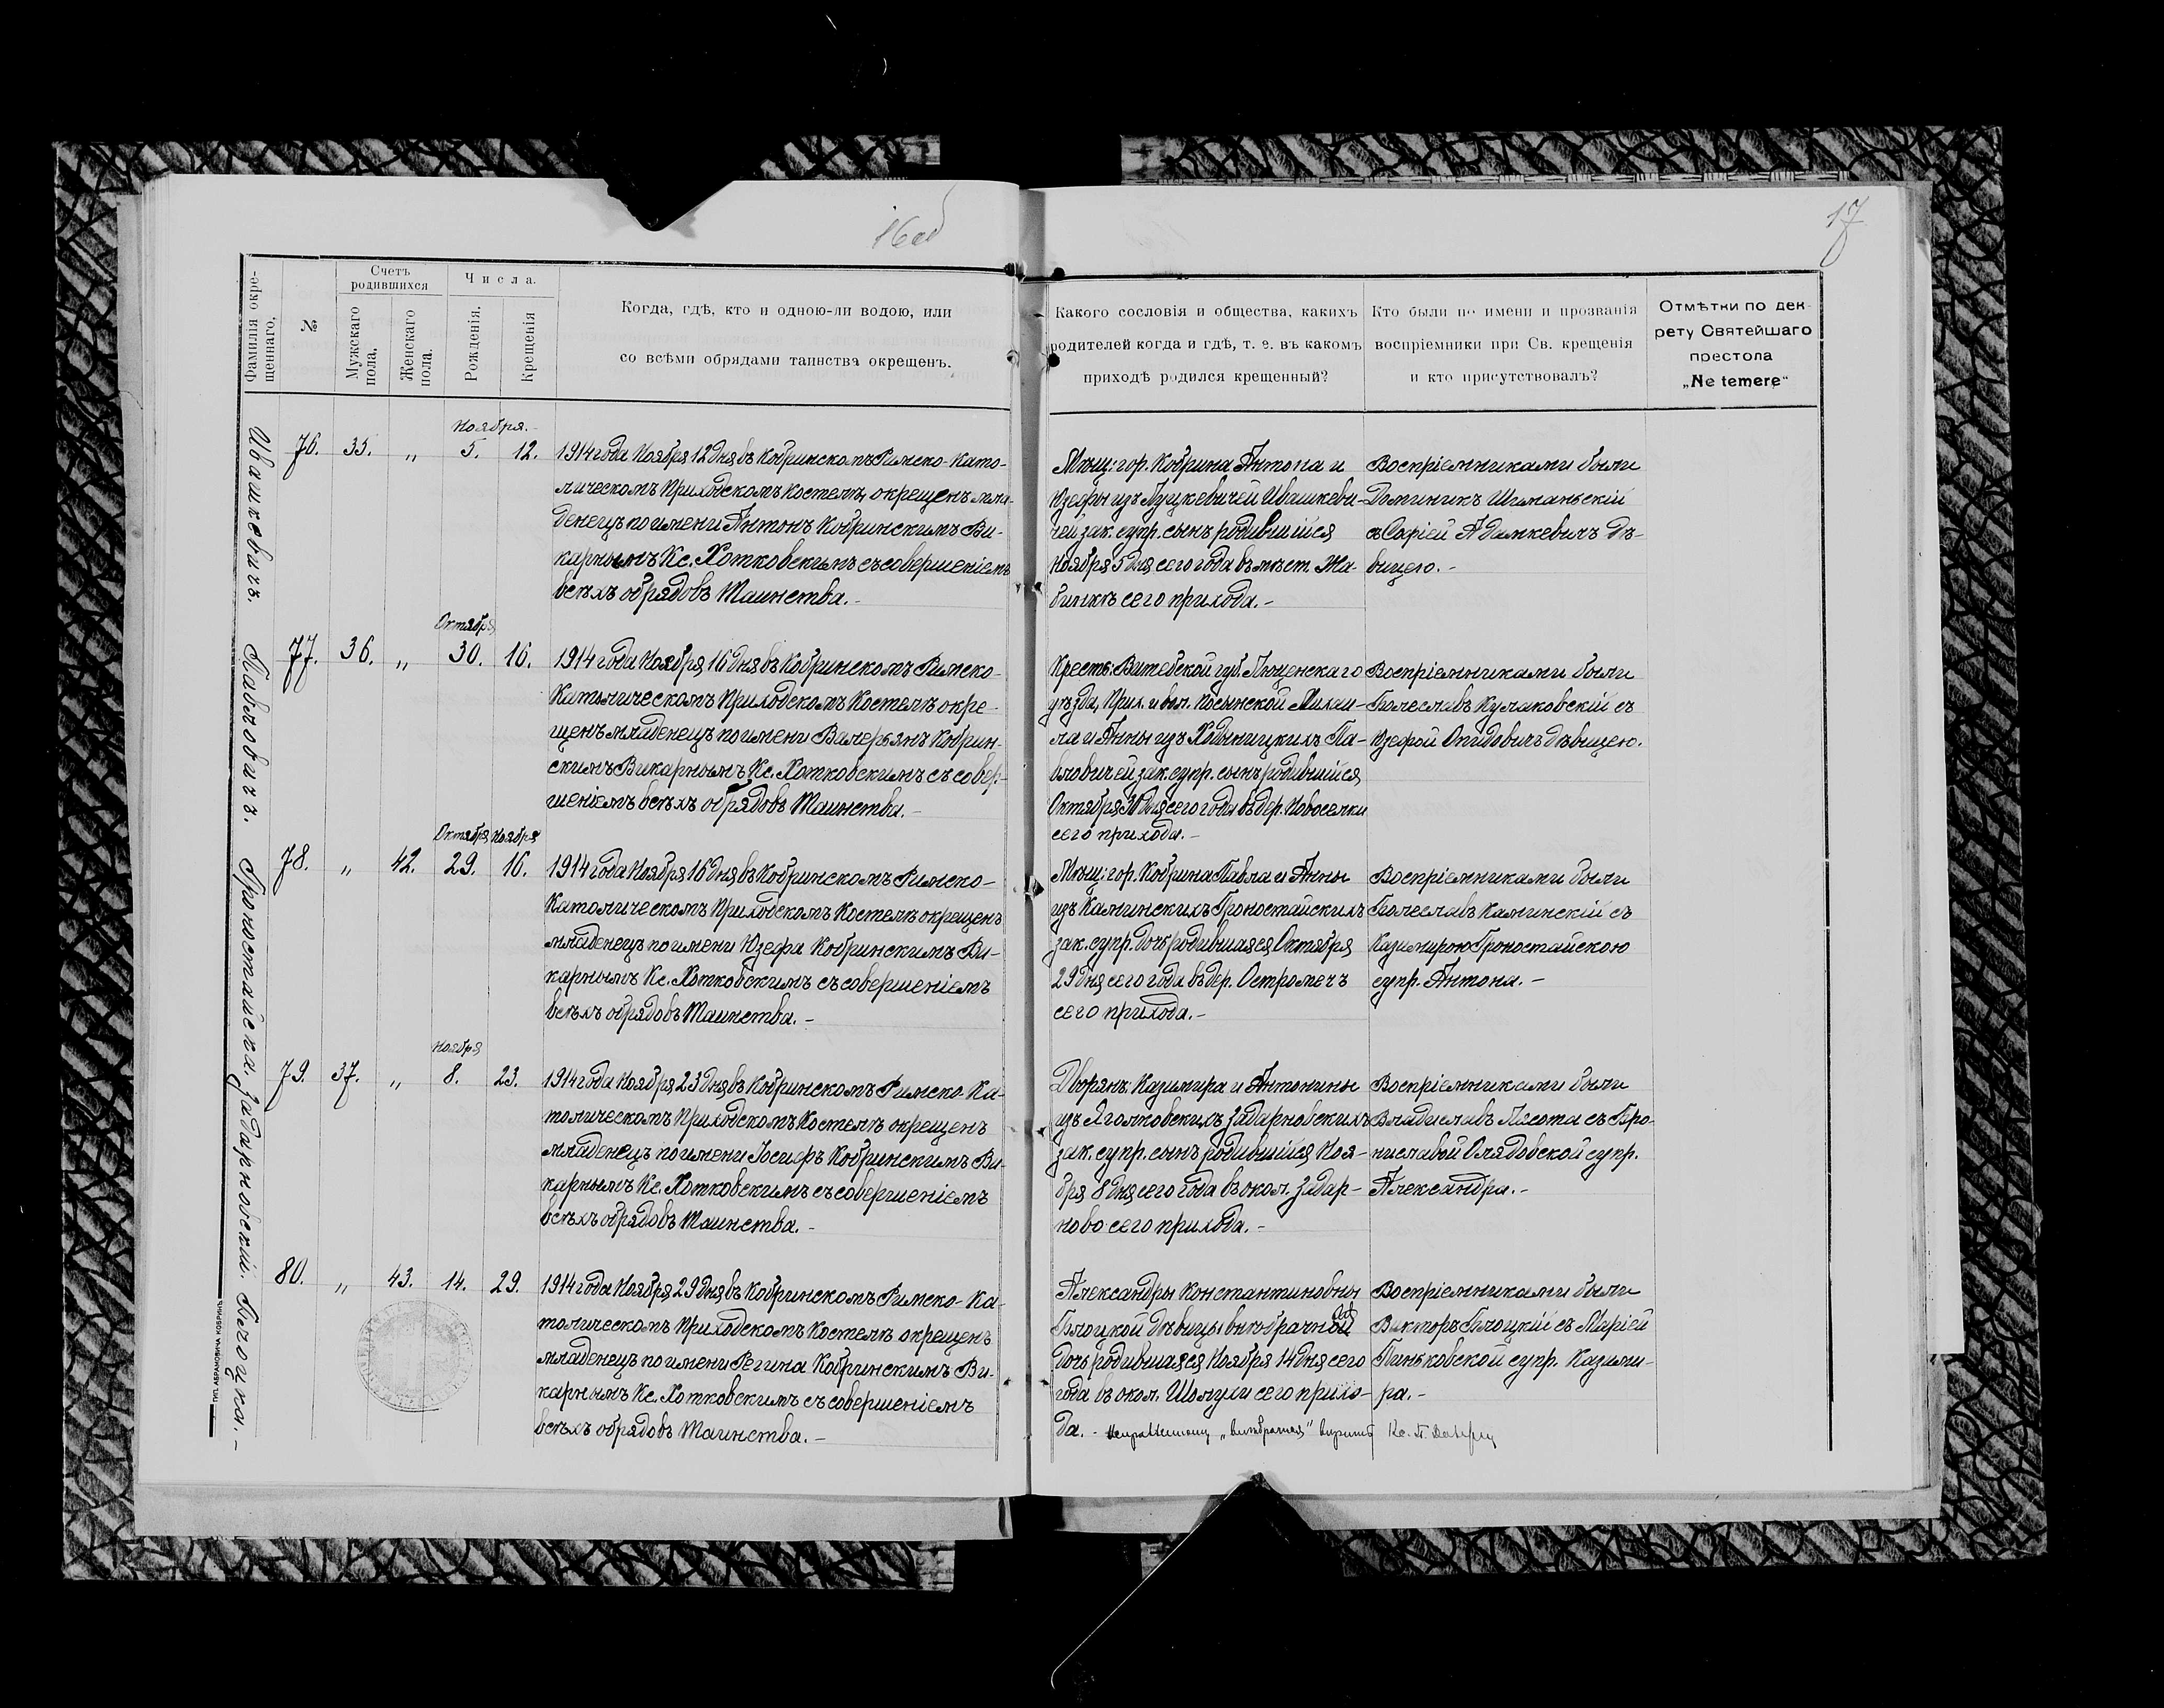 16об
17
Фамилія окре-
щеннаго.
№
Счетъ
родившихся
Мужскаго
пола.
Женскаго
пола.
Числа.
Рожденія.
Крещенія
Когда, гдѣ, кто и одною-ли водою, или
со всѣми обрядами таинства окрещенъ.
Какого сословія и общества, какихъ
родителей когда и гдѣ, т. е. въ какомъ
приходѣ родился крещенный?
Кто были по имени и прозванія
воспріемники при Св. крещенія
и кто присутствовалъ?
Отмѣтки по дек-
рету Святейшаго
престола
„Ne temere“
Ивашкевичъ.
76. 35. „
Ноября.
5. 12.
1914 года Ноября 12 дня въ Кобринскомъ Римско-Като-
лическомъ Приходскомъ Костелѣ окрещенъ мла-
денецъ по имени Антонъ Кобринскимъ Ви-
карнымъ Кс. Хотковскимъ съ совершеніемъ
всѣхъ обрядовъ Таинства.-
Мѣщ: гор. Кобрина Антона и
Юзефы изъ Луцкевичей Ивашкеви-
чей зак. супр. сынъ родившійся
Ноября 5 дня сего года въ мѣст. Жа-
бинкѣ сего прихода.-
Воспріемниками были
Доминикъ Шиманьскій
съ Софіей Адамкевичъ дѣ-
вицею.-
Павловичъ.
77. 36. „
Октября
30. 16.
1914 года Ноября 16 дня въ Кобринскомъ Римско-
Католическомъ Приходскомъ Костелѣ окре-
щенъ младенецъ по имени Валерьянъ Кобрин-
скимъ Викарнымъ Кс. Хотковскимъ съ совер-
шеніемъ всѣхъ обрядовъ Таинства.-
Крест: Витебской губ. Люценскаго
уѣзда, Прих. и вол. Посинской Михаи-
ла и Анны изъ Ходыницкихъ Па-
вловичей зак. супр. сынъ родившійся
Октября 30 дня сего года въ дер. Новоселки
сего прихода.-
Воспріемниками были
Болеславъ Кулаковскій съ
Юзефой Опидовичъ дѣвицею.
Гроностайска.
78. „ 42.
Октября Ноября
29. 16.
1914 года Ноября 16 дня въ Кобринскомъ Римско-
Католическомъ Приходскомъ Костелѣ окрещенъ
младенецъ по имени Юзефа Кобринскимъ Ви-
карнымъ Кс. Хотковскимъ съ совершеніемъ
всѣхъ обрядовъ Таинства.-
Мѣщ: гор. Кобрина Павла и Анны
изъ Калинскихъ Гроностайскихъ
зак. супр. дочь родившаяся Октября
29 дня сего года въ дер. Остромечъ
сего прихода.-
Воспріемниками были
Болеславъ Калинскій съ
Казимирою Гроностайскою
супр. Антона.-
Задарновскій.
79. 37. „
Ноября
8. 23.
1914 года Ноября 23 дня въ Кобринскомъ Римско-Ка-
толическомъ Приходскомъ Костелѣ окрещенъ
младенецъ по имени Іосифъ Кобринскимъ Ви-
карнымъ Кс. Хотковскимъ съ совершеніемъ
всѣхъ обрядовъ Таинства.-
Дворянъ Казимира и Антонины
изъ Яголковскихъ Задарновскихъ
зак. супр. сынъ родившійся Ноя-
бря 8 дня сего года въ окол. Задар-
ново сего прихода.-
Воспріемниками были
Владиславъ Лясота съ Бро-
ниславой Олядовской супр.
Александра.-
Бѧлоцка.-
80. „ 43. 14. 29.
1914 года Ноября 29 дня въ Кобринскомъ Римско-Ка-
толическомъ Приходскомъ Костелѣ окрещенъ
младенецъ по имени Регина Кобринскимъ Ви-
карнымъ Кс. Хотковскимъ съ совершеніемъ
всѣхъ обрядовъ Таинства.-
Александры Константиновны
Блоцкой дѣвицы внѣбрачная
дочь родившаяся Ноября 14 дня сего
года въ окол. Шомули сего прихо-
да.-
Воспріемниками были
Викторъ Блоцкій съ Маріей
Піньковской супр. Казими-
ра.-
ТИП. АБРАМОВИЧА КОБРИНЪ